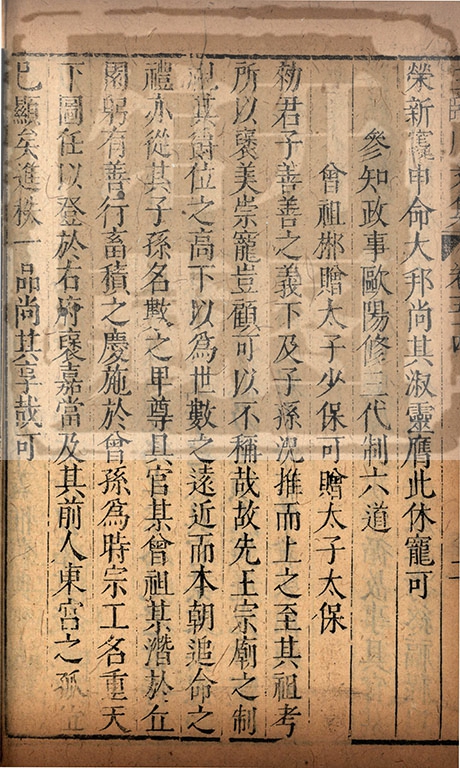 榮新寔申命大邦尚其淑靈膺此休寵可
參知政事歐陽修三代制六道
曾祖郴贈太子少保可贈太子太保
勑君子善善之義下及子孫況推而上之至其祖考
所以襃美崇寵豈顧可以不稱哉故先王宗廟之制
視其爵位之高下以為世數之遠近而本朝追命之
禮亦從其子孫名數之甲尊具官某曾祖某潛於丘
園躬有善行畜積之慶施於曾孫為時宗工名重天
下圖任以登於右府襃嘉當及其前人東宮之孤位
已顯矣進秩一品尚其享哉可